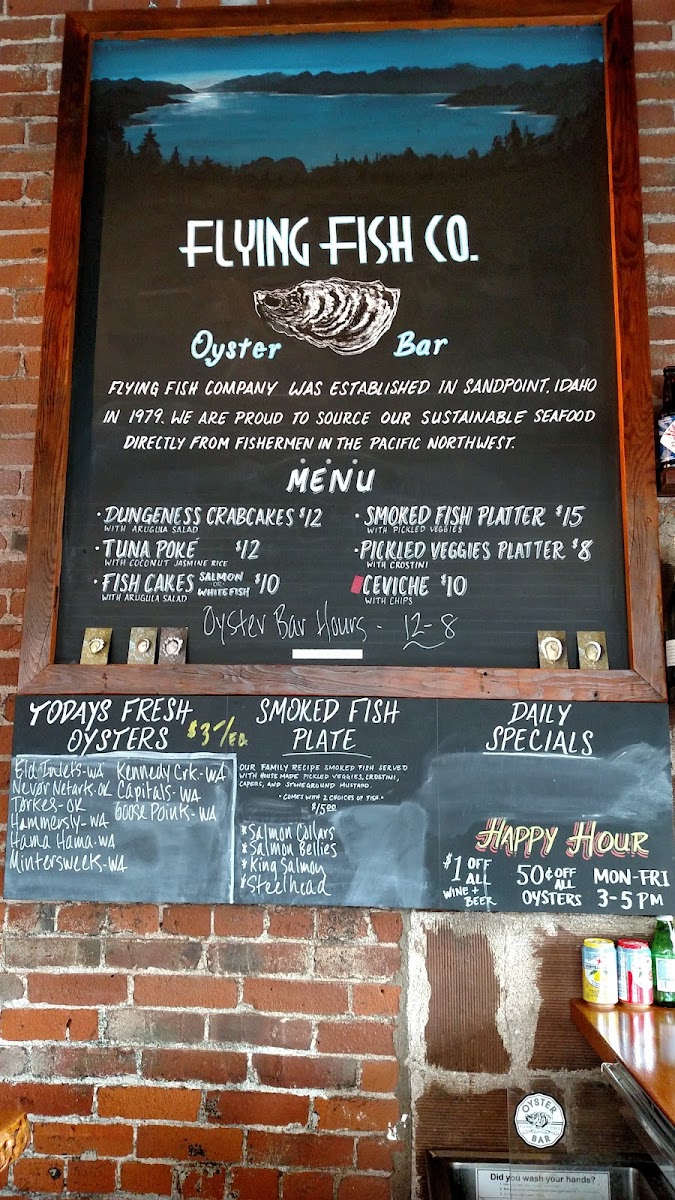 FLYING FISH CO.
Oyster Bar
FLYING FISH COMPANY WAS ESTABLISHED IN SANDPOINT, IDAHO
IN 1979. WE ARE PROUD TO SOURCE OUR SUSTAINABLE SEAFOOD
DIRECTLY FROM FISHERMEN IN THE PACIFIC NORTHWEST.
MENU
• DUNGENESS CRABCAKES $12
WITH ARUGULA SALAD
• TUNA POKÉ $12
WITH COCONUT JASMINE RICE
• FISH CAKES SALMON -OR- WHITEFISH $10
WITH ARUGULA SALAD
• SMOKED FISH PLATTER $15
WITH PICKLED VEGGIES
• PICKLED VEGGIES PLATTER $8
WITH CROSTINI
CEVICHE $10
WITH CHIPS
Oyster Bar Hours - 12-8
TODAYS FRESH
OYSTERS $3-/EA
Eld Inlets-WA
Nevor Netark-OR
Torkes-OR
Hammersly-WA
Hama Hama-WA
Mintersweek-WA
Kennedy Crk-WA
Capitals-WA
Goose Point-WA
SMOKED FISH
PLATE
OUR FAMILY RECIPE SMOKED FISH SERVED
WITH HOUSE MADE PICKLED VEGGIES, CROSTINI,
CAPERS, AND STONEGROUND MUSTARD.
• COMES WITH 2 CHOICES OF FISH •
$15.00
*Salmon Collars
*Salmon Bellies
*King Salmon
*Steelhead
DAILY
SPECIALS
HAPPY HOUR
$1 OFF
ALL
WINE +
BEER
50¢ OFF
ALL
OYSTERS
MON-FRI
3-5 PM
OYSTER
BAR
Did you wash your hands?